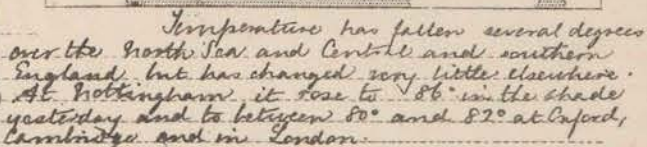 Temperature has fallen several degrees
over the North Sea and Central and southern
England but has changed very little elsewhere.
At Nottingham it rose to 86° in the shade
yesterday and to between 80° and 82° at Oxford,
Cambridge and in London.